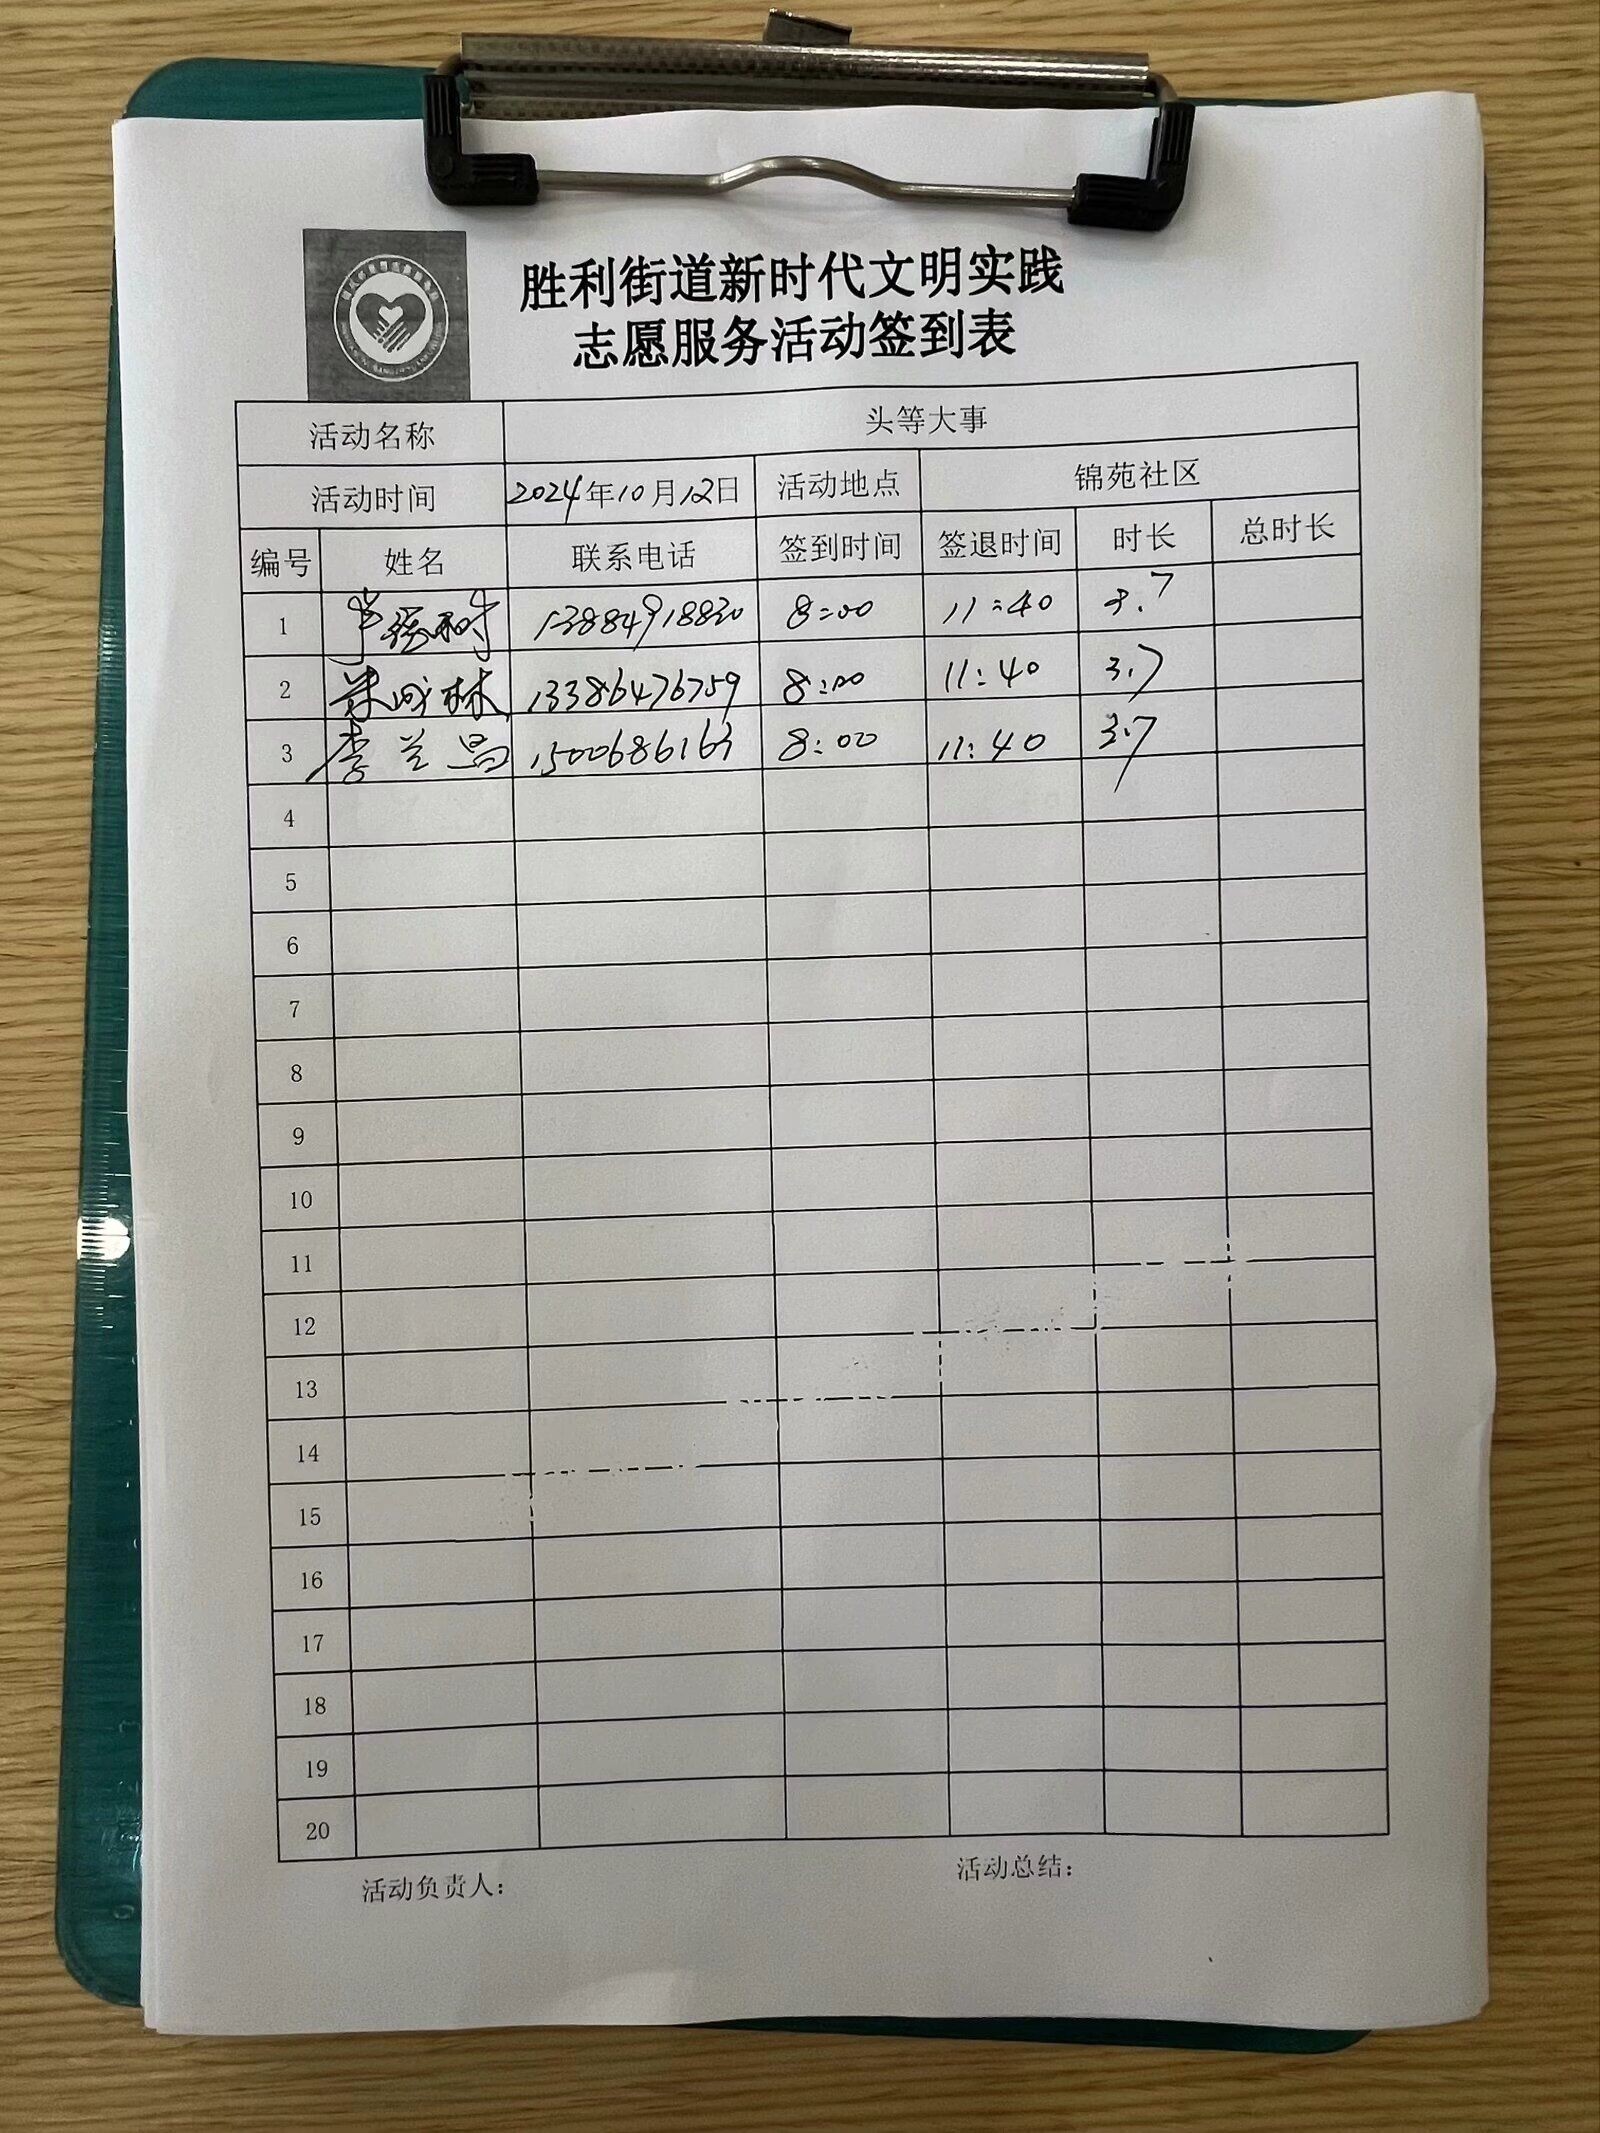 胜利街道新时代文明实践
志愿服务活动签到表
活动名称 头等大事
活动时间 2024年10月12日 活动地点 锦苑社区
编号 姓名 联系电话 签到时间 签退时间 时长 总时长
1 13884918830 8:00 11:40 3.7
2 林 13386476759 8:00 11:40 3.7
3 李兰昌 1500686163 8:00 11:40 3.7
4
5
6
7
8
9
10
11
12
13
14
15
16
17
18
19
20
活动负责人: 活动总结: